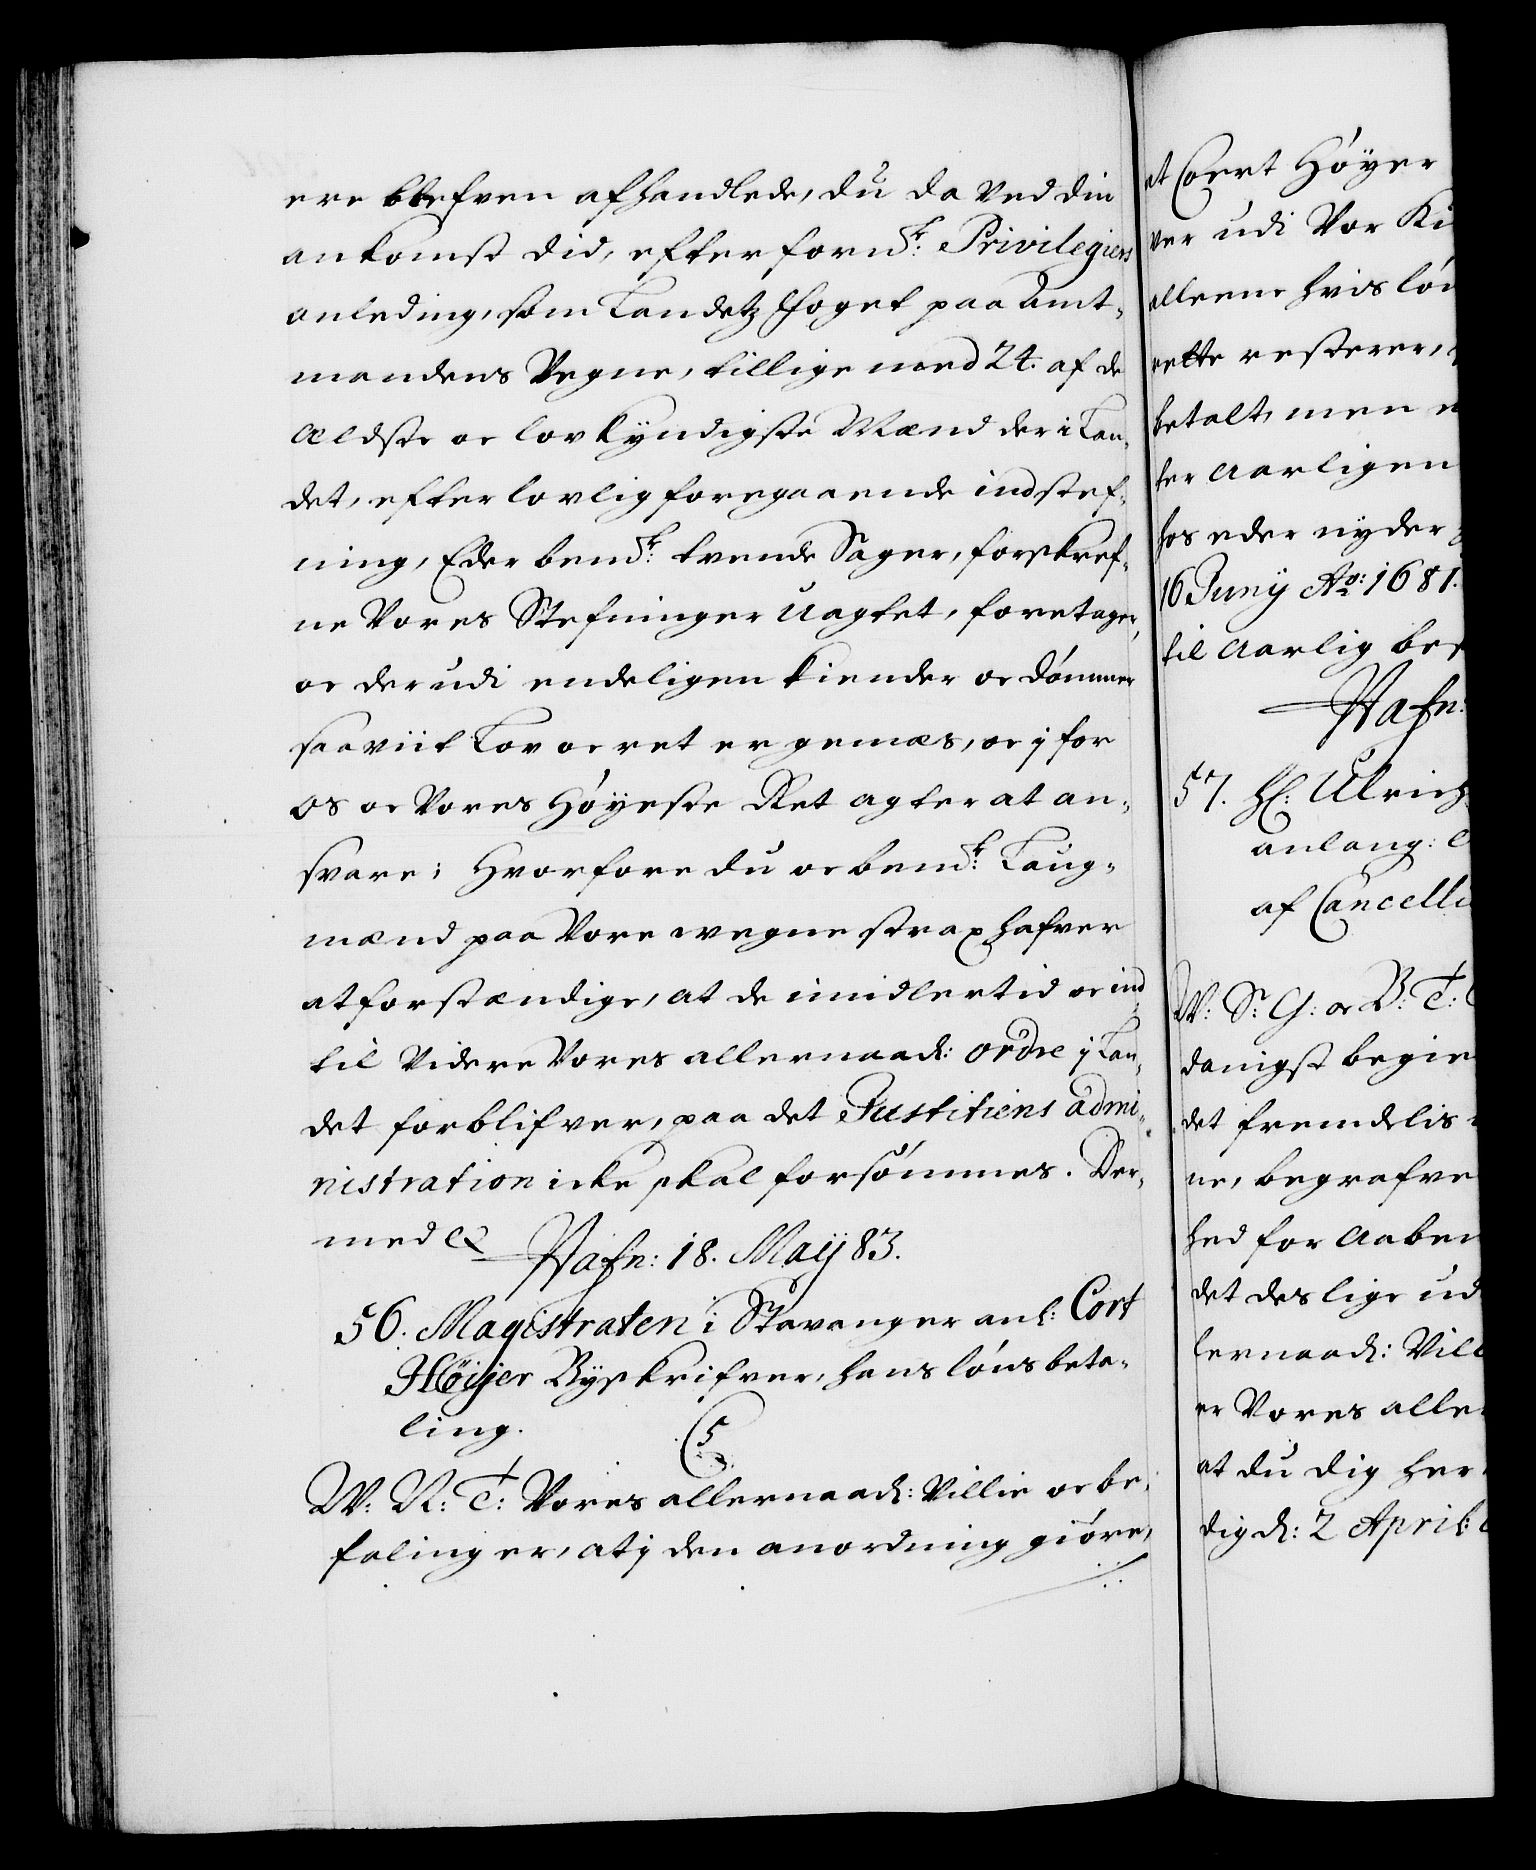 ere blefven afhandlede, du da ved din
ankomst did, efter fornd: Privilegiers
anleding, som Landetz Foget paa Amt-
mandens Vegne, tillige med 24. af de
Ældste oc lovkyndigste Mænd der i Lan-
det, efter lovlig foregaaende indstef-
ning, Eder bemd: tvende Sager, forskref-
ne Vores Stefninger Uagtet, foretager,
oc der udi endeligen kiender oc dømmer
saaviit Lov oc ret er gemæs, oc i for
os oc Vores Høyeste Ret agter at an-
svare; Hvorfore du oc bemd: Laug-
mænd paa Vore vegne strax hafver
at forstændige, at de imidlertid oc ind
til Videre Vores allernaad: ordre i Lan-
det forblifver, paa det Justitiens admi-
nistration icke skal forsømmes. Der-
med &
Hafn: 18. Maij 83.
56. Magistraten i Stavanger anl: Cort
Höijer Byskrifver, hans løns beta-
ling.
W: N: T: Vores allernaad: Villie oc be-
faling er, at i den anordning giøre,
at Coert Höyer
ver udi Vor Ki
alleene hvis løn
rette resterer,
betalt, men
ter aarligen
hos eder nyder
16 Junij Ao: 1681.
til aarlig bes
Hafn:
57. Hl: Ulrich
anlang:
af Cancelli
W: S: G: oc B: T:
danigst begie
det fremdelis
ne, begrafve
hed for aaben
det deslige ud
lernaad: Vill
er Vores alle
at du dig her
dig d: 2 April: